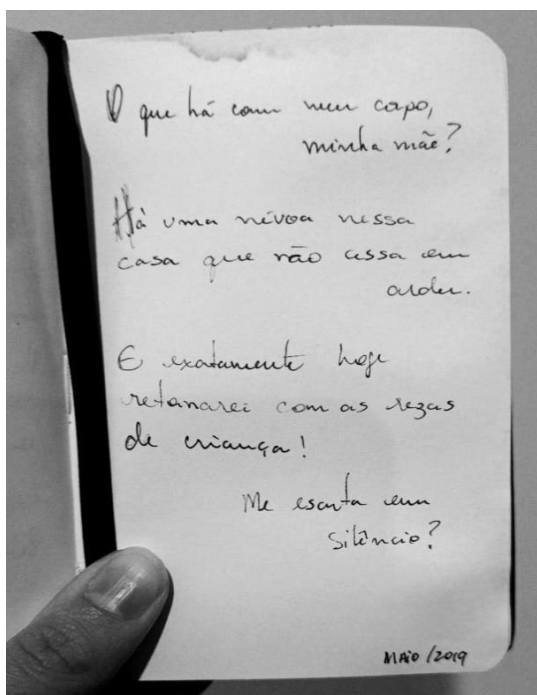 O que há com meu corpo,
minha mãe?
Há uma névoa nessa
casa que não cessa em
arder.
E exatamente hoje
retomarei com as rezas
de criança!
Me escuta em
silêncio?
MAIO/2019